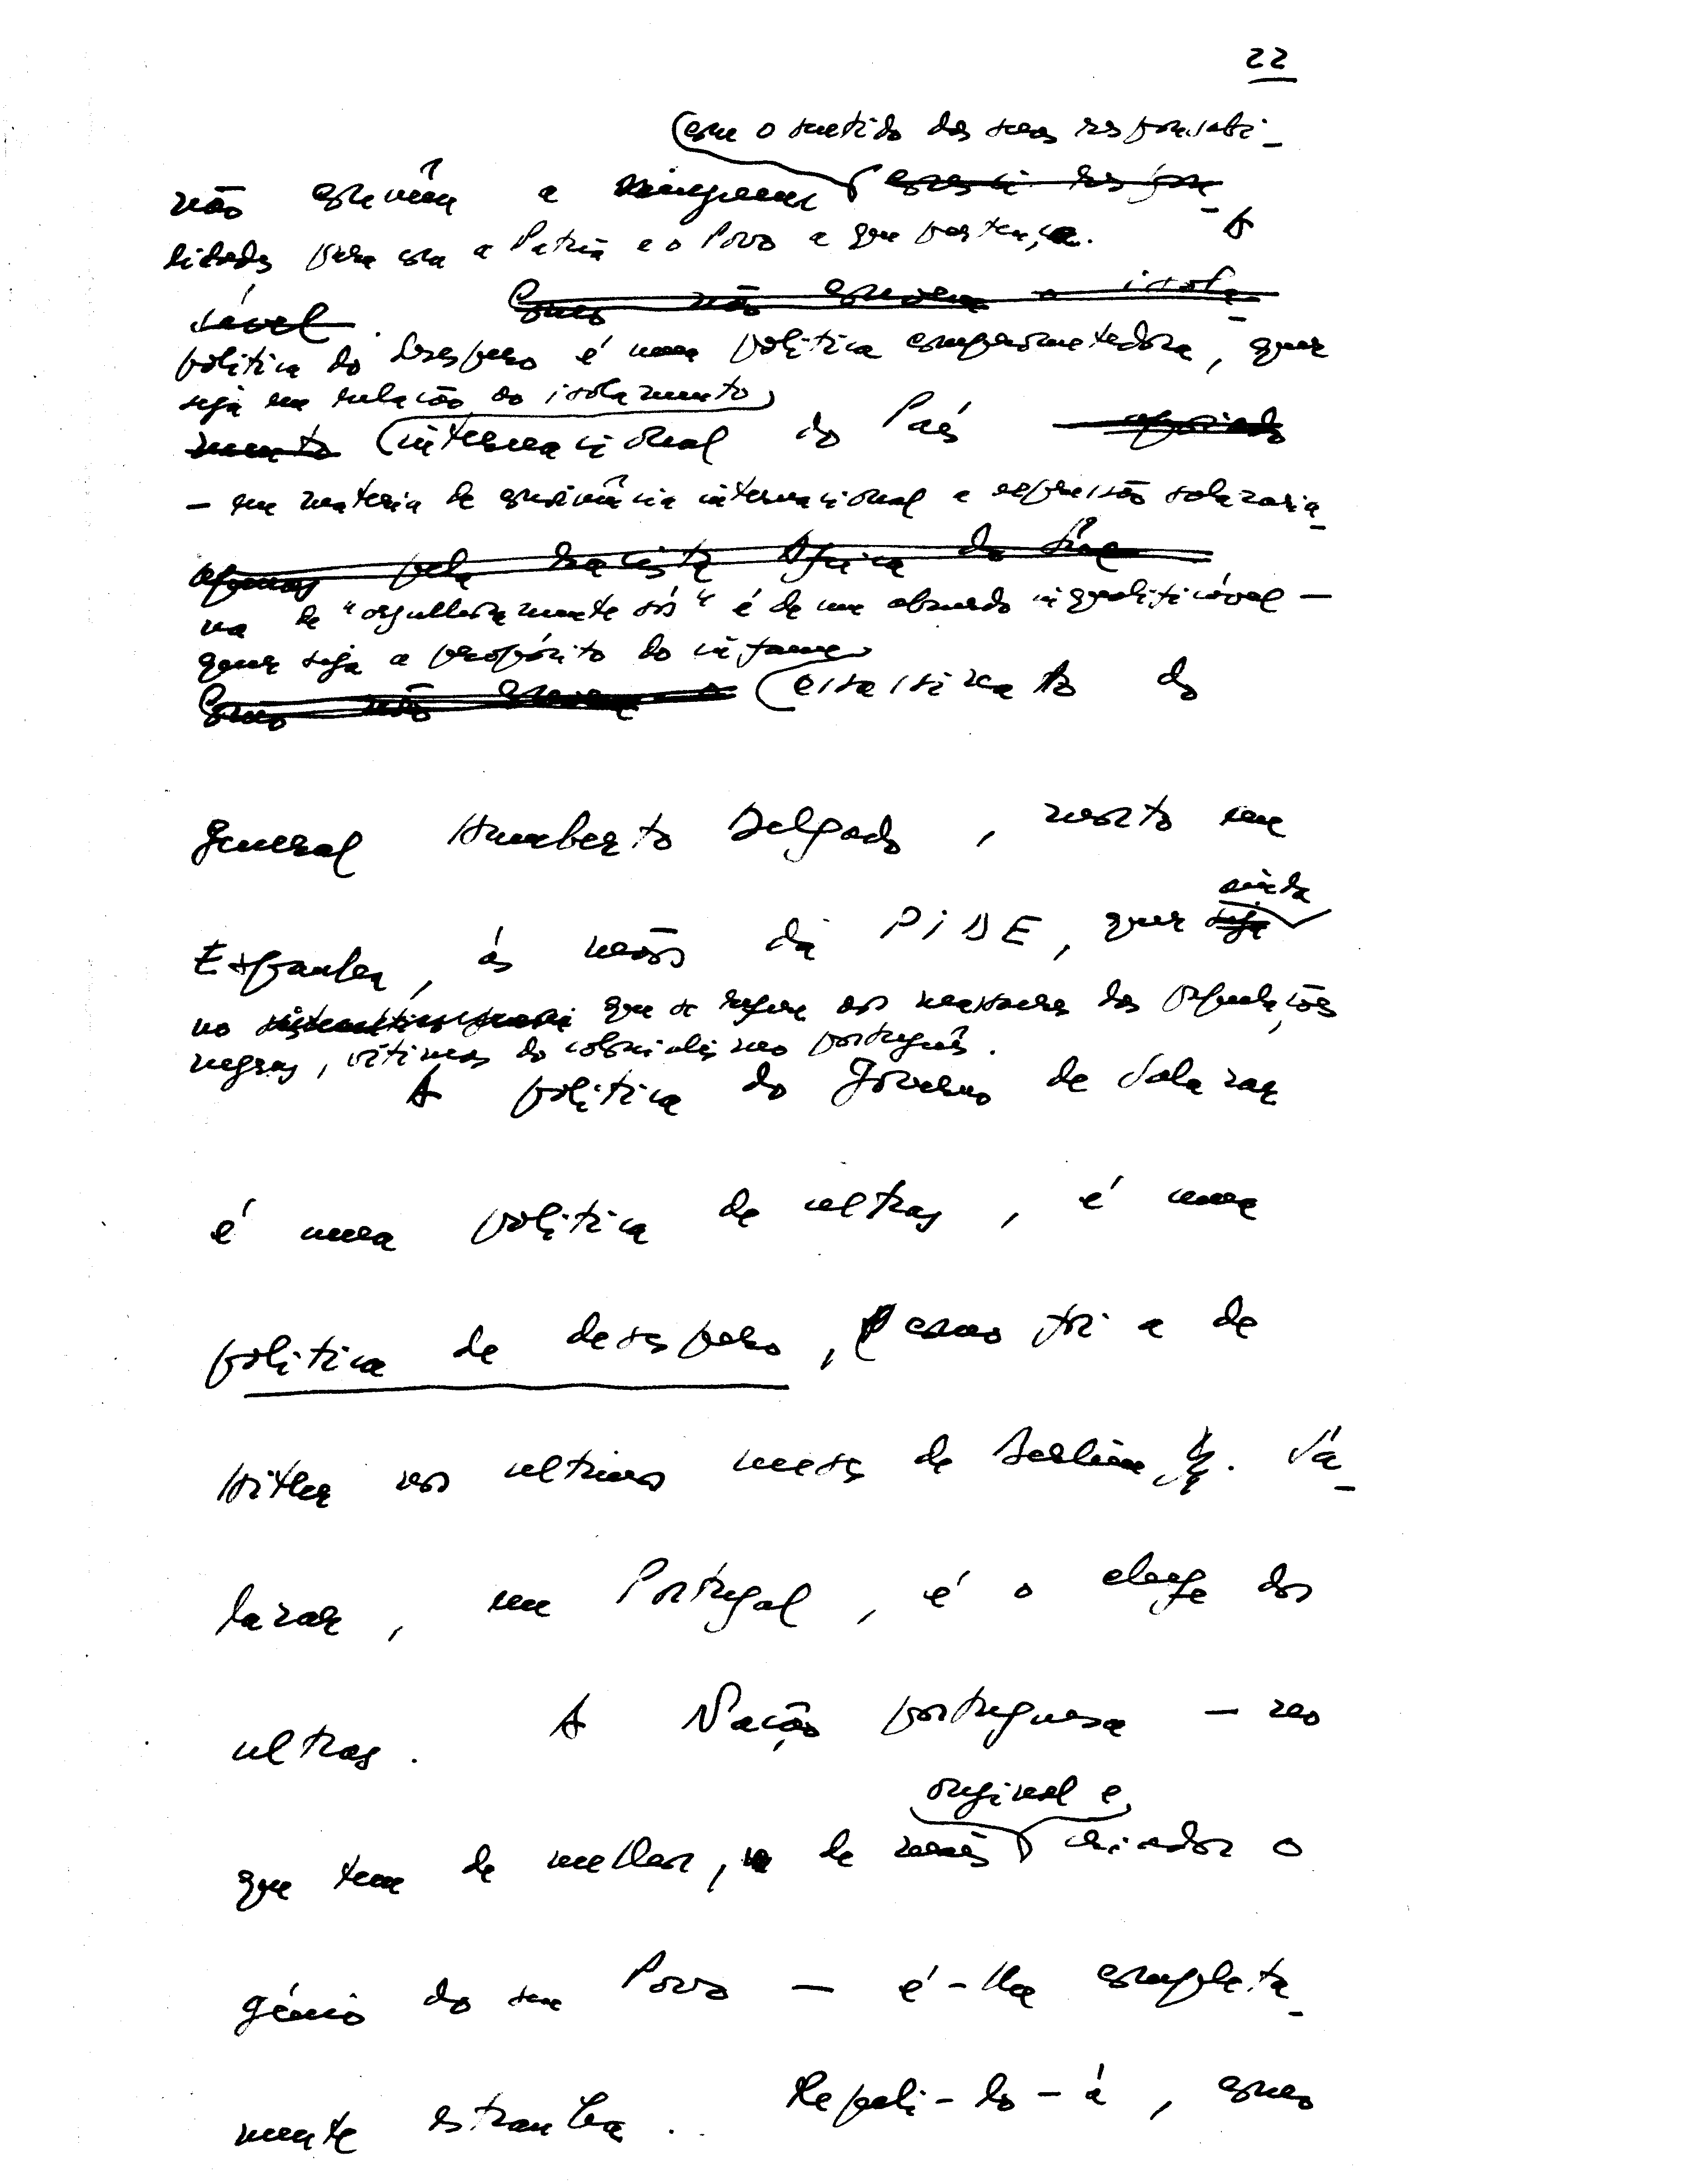 22
com o sentido das suas responsabi-
não convém a ninguém
lidades para com a Pátria e o Povo a que pertença. A
sável. Como não convém o isola-
política do desespero é uma política comprometedora, quer
seja em relação ao isolamento
mento internacional do País apoiado
- em matéria de convivência internacional a expressão salazaria-
apenas pela racista África do Sul
na de "orgulhosamente sós" é de um absurdo inqualificável -
quer seja a propósito do infame
Como não convém o assassinato do
General Humberto Delgado, morto em
ainda
Espanha, às mãos da PIDE, quer seja
no que se refere aos massacres das populações
negras, vítimas do colonialismo português.
A política do Governo de Salazar
é uma política de ultras, é uma
política de desespero, como foi a de
Hitler nos ultimos meses de Berlim. Sa-
lazar, em Portugal, é o chefe dos
ultras. A Nação portuguesa - no
original e
que tem de melhor, de mais criador o
génio do seu Povo - é-lhe completa-
mente estranha. Repeli-lo-á, como